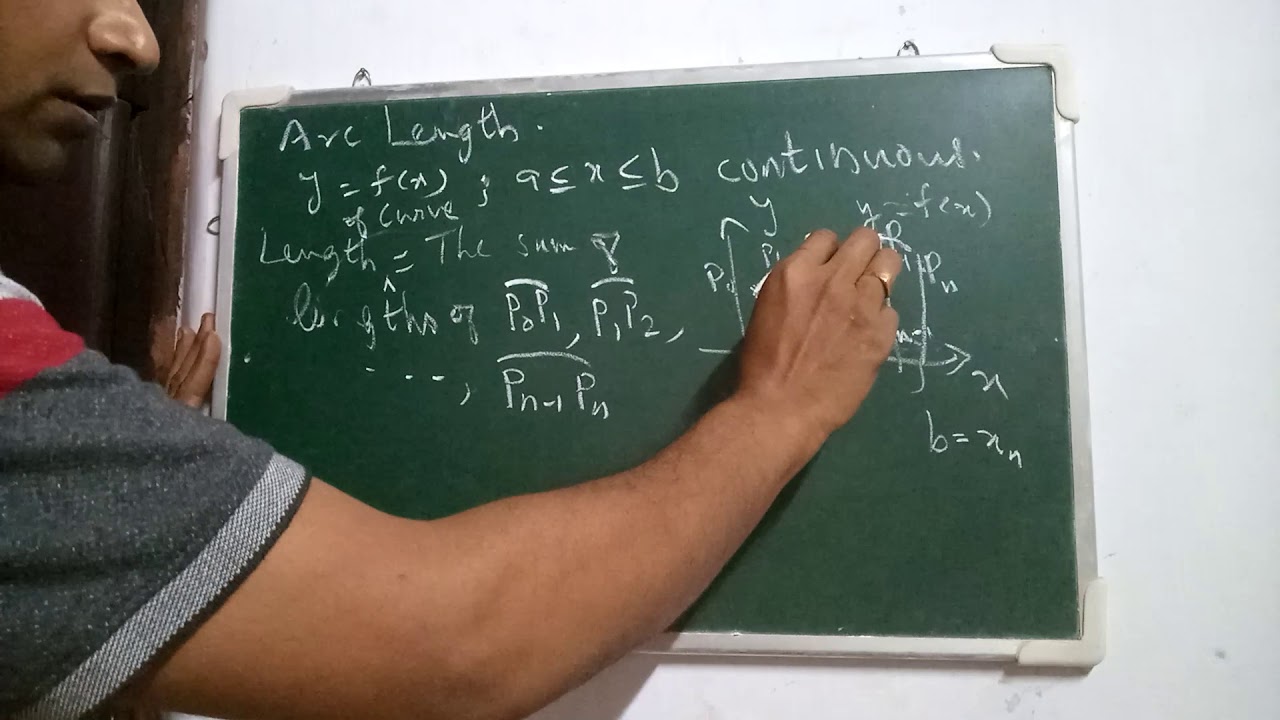 Arc Length.
y = f(x) ; a ≤ x ≤ b continuous.
of curve
Length ^ = The sum of
lengths of P0P1, P1P2,
- - - -, Pn-1 Pn
y
y = f(x)
P1
Pn
x
b = xn